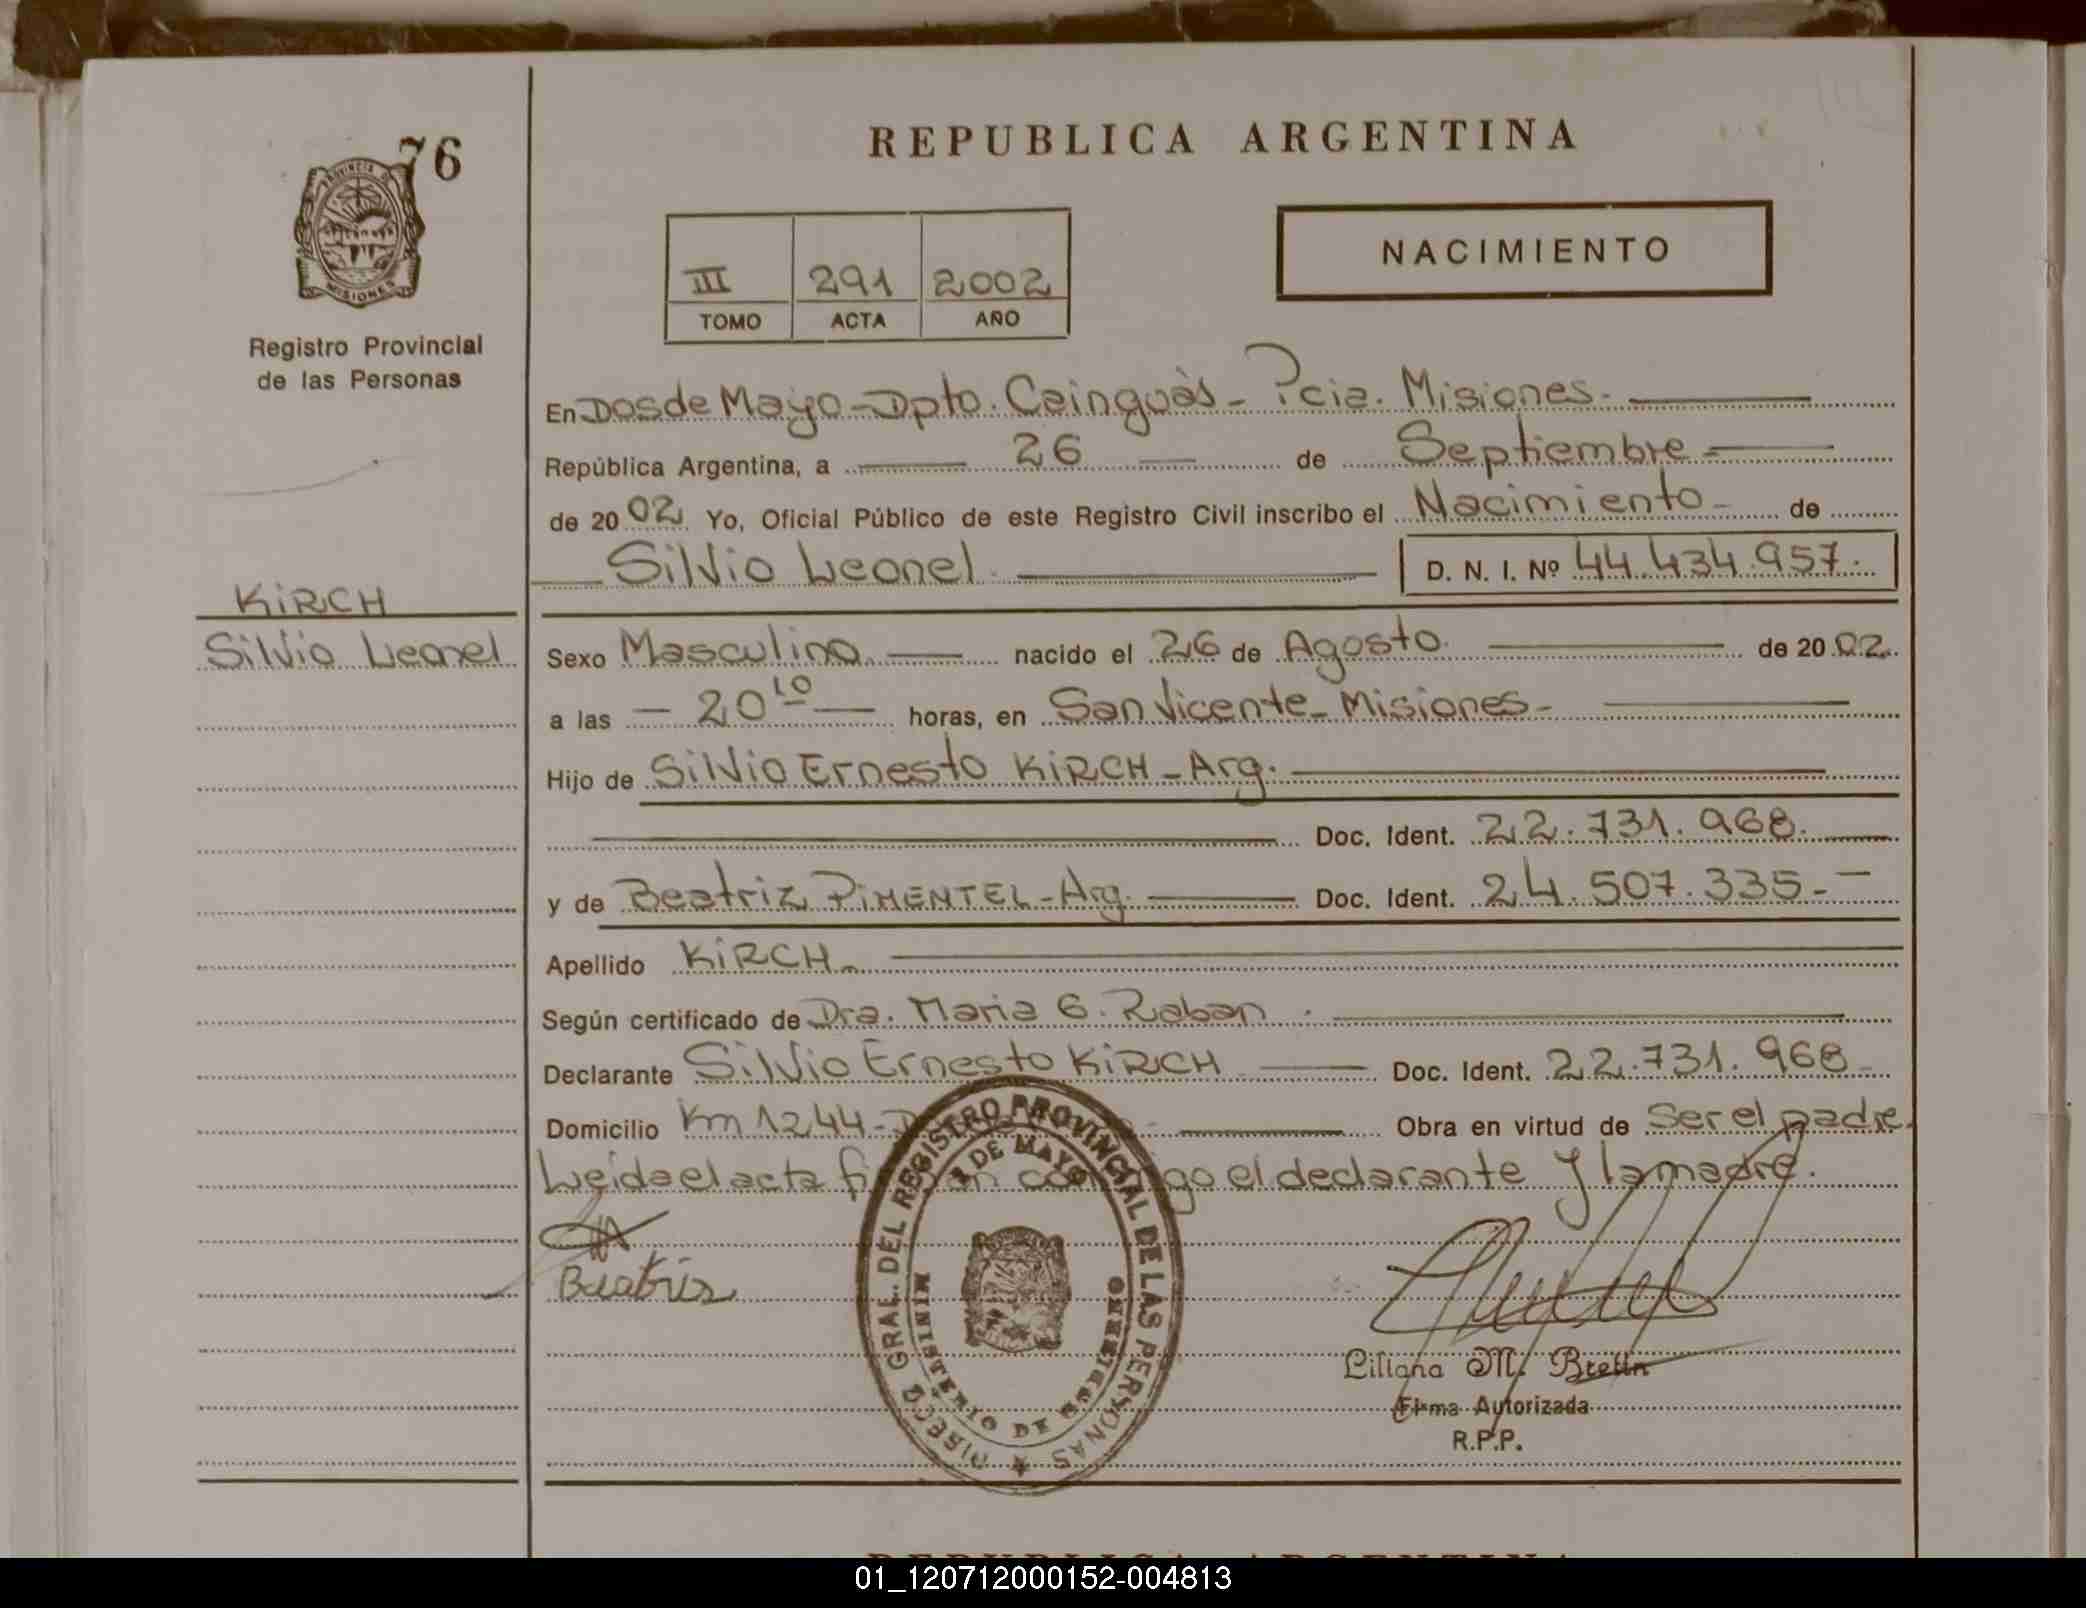 76
REPUBLICA ARGENTINA
NACIMIENTO
III 291 2002
TOMO ACTA AÑO
Registro Provincial
de las Personas
En Dos de Mayo - Dpto. Cainguàs - Pcia. Misiones.
República Argentina, a 26 de Septiembre
de 2002 Yo, Oficial Público de este Registro Civil inscribo el Nacimiento de
Silvio Leonel D. N. I. Nº 44.434.957.
KiRCH
Silvio Leonel
Sexo Masculino nacido el 26 de Agosto de 2002
a las 20 10 horas, en San Vicente - Misiones -
Hijo de Silvio Ernesto KiRCH - Arg.
Doc. Ident. 22.731.968.
y de Beatriz PiMENTEL - Arg. Doc. Ident. 24.507.335.-
Apellido KiRCH
Según certificado de Dra. Maria G. Raban
Declarante Silvio Ernesto KiRCH Doc. Ident. 22.731.968
Domicilio Km 1244 - Obra en virtud de Ser el padre.
Leida el acta el declarante y la madre.
Beatris
DIRECC. GRAL. DEL REGISTRO PROVINCIAL DE LAS PERSONAS
2 DE MAYO
MINISTERIO DE GOBIERNO
Liliana M. Brettn
Firma Autorizada
R.P.P.
REPUBLICA ARGENTINA
01_120712000152-004813